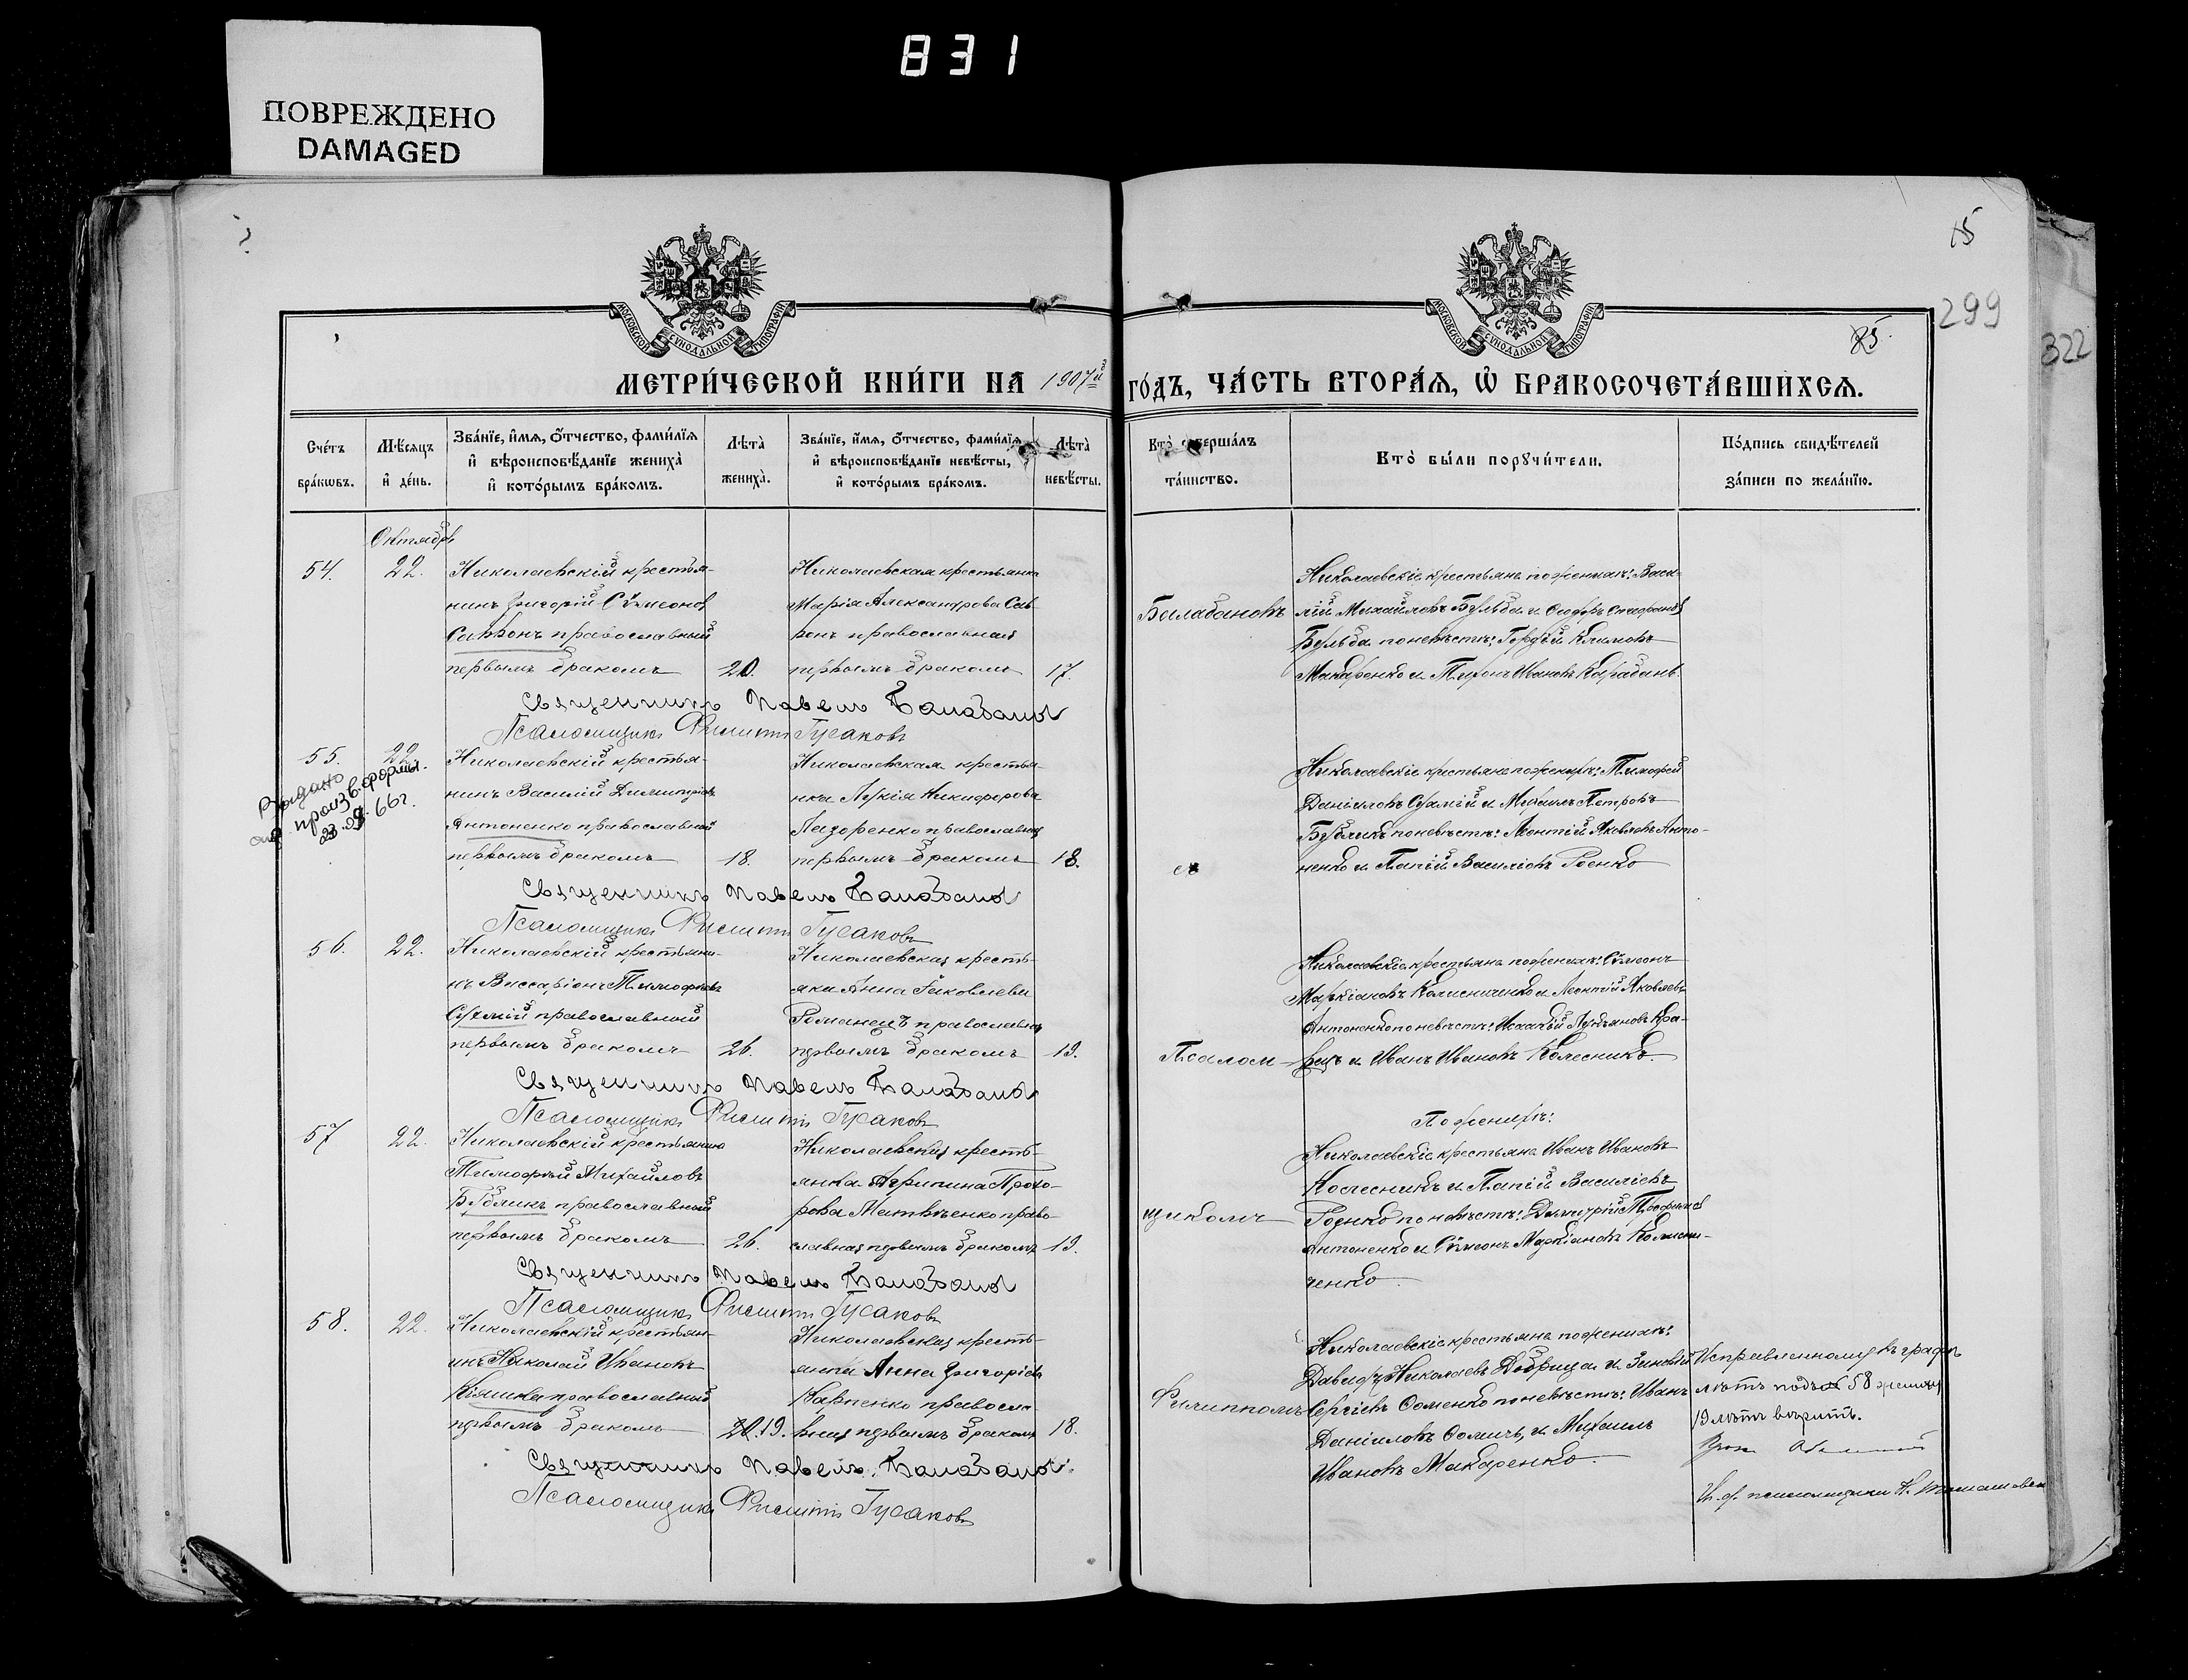 831
ПОВРЕЖДЕНО
DAMAGED
15
299
322
85.
МОСКОВСКОЙ СѴНОДАЛЬНОЙ ТИПОГРАФІИ
МОСКОВСКОЙ СѴНОДАЛЬНОЙ ТИПОГРАФІИ
МЕТРИ́ЧЕСКОЙ КНИ́ГИ НА 1907й ГО́ДЪ, ЧА́СТЬ ВТОРА́Я, Ѡ БРАКОСОЧЕТА́ВШИХСЯ.
Сче́тъ бра́кѡвъ.
Мѣ́сяцъ и де́нь.
Зва́нїе, и́мя, о́тчество, фами́лїя и вѣроисповѣ́данїе жениха̀ и кото́рымъ бра́комъ.
Лѣта̀ жениха̀.
Зва́нїе, и́мя, о́тчество, фами́лїя и вѣроисповѣ́данїе невѣ́сты, и кото́рымъ бра́комъ.
Лѣта̀ невѣ́сты.
Кто̀ соверша́лъ та́инство.
Кто̀ бы́ли порꙋчи́тели.
По́дпись свидѣ́телей за́писи по жела́нїю.
Октябрь
54. 22. Николаевскій крестья-
нинъ Григорій Сѵмеоновъ
Саввонъ православный
первымъ бракомъ 20.
Николаевская крестьянка
Марія Александрова Сав-
вонъ православная
первымъ бракомъ 17.
Балабановъ
Николаевскіе крестьяне по женихѣ: Васи-
лій Михайловъ Бульба и Ѳеодоръ Стефановъ
Бульба по невѣстѣ: Гордѣй Климовъ
Макаренко и Тихонъ Ивановъ Карабанъ.
Священникъ Павелъ Балабановъ
Псаломщикъ Филиппъ Гусаковъ
55. 22. Николаевскій крестья-
нинъ Василій Димитріевъ
Антоненко православный
первымъ бракомъ 18.
Выдано
произв. формы
23. 09. 66г.
Николаевская крестья-
нка Лукія Никифорова
Лазоренко православная
первымъ бракомъ 18.
Николаевскіе крестьяне по женихѣ: Тимофей
Даніиловъ Сухлій и Михаилъ Петровъ
Бублikъ по невѣстѣ: Леонтій Яковлевъ Анто-
ненко и Папій Василіевъ Роенко
Священникъ Павелъ Балабановъ
Псаломщикъ Филиппъ Гусаковъ
56. 22. Николаевскій крестьяни-
нъ Виссаріонъ Тимофеевъ
Сухлій православный
первымъ бракомъ 26.
Николаевская кресть-
янка Анна Іаковлева
Романецъ православная
первымъ бракомъ 19.
Псалом-
Николаевскіе крестьяне по женихѣ: Сѵмеонъ
Маркіановъ Колисниченко и Леонтій Яковлевъ
Антоненко по невѣстѣ: Исаакій Лукьяновъ Кра-
вецъ и Иванъ Ивановъ Колесникъ
Священникъ Павелъ Балабановъ
Псаломщикъ Филиппъ Гусаковъ
57 22. Николаевскій крестьянинъ
Тимофей Михайловъ
Бубликъ православный
первымъ бракомъ 26.
Николаевская кресть-
янка Агрипина Прохо-
рова Матвѣенко право-
славная первымъ бракомъ 19.
щикомъ
По женихѣ:
Николаевскіе крестьяне Иванъ Ивановъ
Колесникъ и Папій Василіевъ
Роенко по невѣстѣ: Димитрій
Антоненко и Сѵмеонъ Маркіановъ Колисни-
ченко.
Священникъ Павелъ Балабановъ
Псаломщикъ Филиппъ Гусаковъ
58. 22. Николаевскій крестьян-
инъ Николай Ивановъ
православный
первымъ бракомъ 20.19.
Николаевская кресть-
янка Анна Григоріева
Карпенко правосла-
вная первымъ бракомъ 18.
Филиппомъ
Николаевскіе крестьяне по женихѣ:
Давидъ Николаевъ Добрица и Зиновій
Сергіевъ Ѳоменко по невѣстѣ: Иванъ
Даніиловъ Ѳомичъ, и Михаилъ
Ивановъ Макаренко.
Исправленному въ графѣ
лѣтъ подъ № 58 жениху
19 лѣтъ вѣрить.
И. д. псаломщика Н.
Священникъ Павелъ Балабановъ
Псаломщикъ Филиппъ Гусаковъ